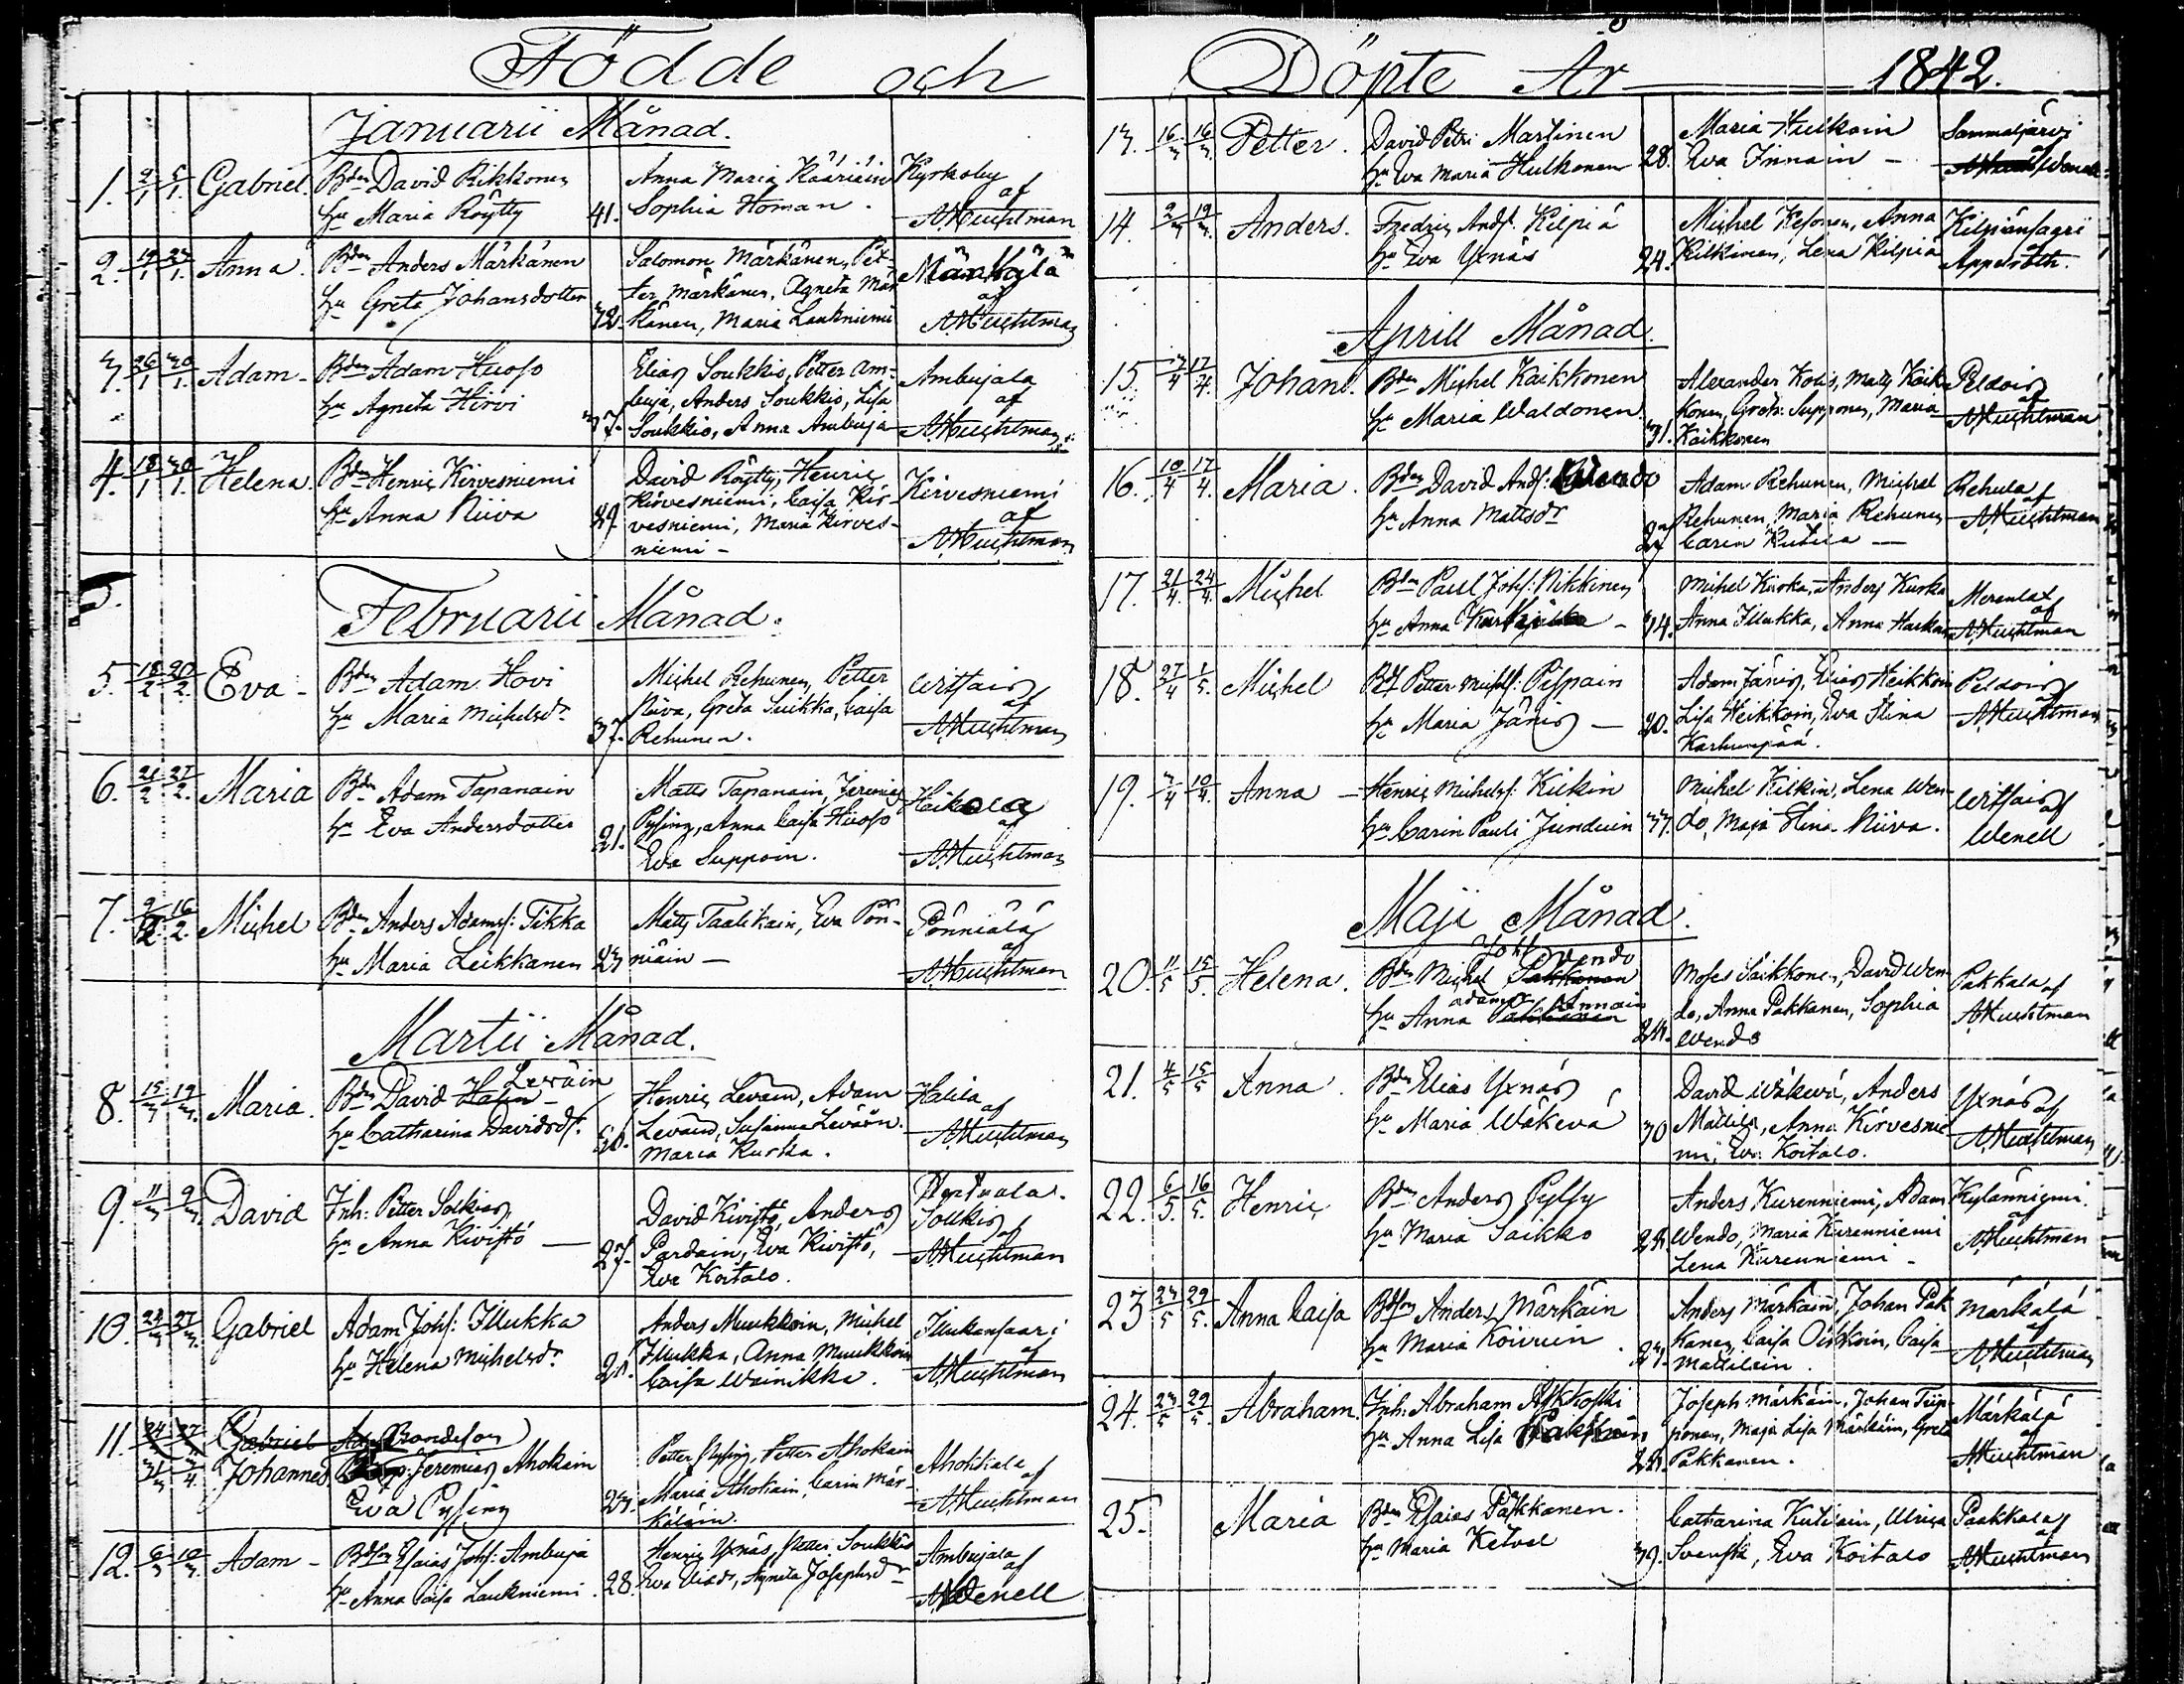 Födde och
Januarii Månad.
1. 2/1 5/1. Gabriel. Bdn David Rikkonen Anna Maria Kääriäin Kyrkoby
hu Maria Röytty 41. Sophia Homan. af
A Huchtman
2. 19/1 23/1. Anna Bdn Anders Märkänen Salomon Märkänen, Pet-
hu Greta Johansdotter ter Märkänen, Agneta Mär
32. känen, Maria Laukniemi af
A Huchtman
3. 26/1 30/1. Adam Bdn Adam Huoso Elias Soukkio, Petter Am- Ambujala
hu Agneta Hirvi buja, Anders Soukkio, Lisa af
37. Soukkio, Anna Ambuja A Huchtman
4. 18/1 30/1. Helena. Bdn Henric Kirvesniemi David Röytty, Henric Kirvesniemi
hu Anna Niiva Kirvesniemi, Caisa Kir- af
29 vesniemi, Maria Kirves- A Huchtman
niemi -
5.
Februarii Månad.
5. 18/2 20/2. Eva Bdn Adam Hovi Michel Rehunen, Petter Witsais
hu Maria Michelsdr Niiva, Greta Suikka, Caisa af
37. Rehunen. A Huchtman
6. 21/2 27/2. Maria Bdn Adam Tapanain Matts Tapanain, Jeremias Haikala
hu Eva Andersdotter 21. Pysing, Anna Caisa Huoso af
Eva Suppoin. A Huchtman
7. 9/2 16/2. Michel Bdn Anders Adams: Tikka Matts Taalikain, Eva Pön- Pönniälä
hu Maria Leikkanen 23 niäin - af
A Huchtman
Martii Månad.
Leväin
8. 15/3 19/3. Maria. Bdn David Henric Leväin, Adam Halila
hu Catharina Davidsdr. Leväin, Susanna Leväin. af
Maria Kurka. A Huchtman
9. 11/3 9/3. David Inh: Petter Solkio David Kivistö, Anders Solkio
hu Anna Kivistö 27. Pardain, Eva Kivistö, af
Eva Koitalo. A Huchtman
10. 24/3 27/3. Gabriel Adam Johs: Illukka Anders Muukkoin, Michel Illukansaari
hu Helena Michelsdr Illukka, Anna Muukkoin af
Caisa Wainikka. A Huchtman
11. 24/3 27/3. Gabriel Bondeson
31/3 /4 Johannes Jeremias Ahokain Petter Pysing, Petter Ahokain Ahokkala
Eva Pysing 23. Maria Ahokain, Carin Mär- af
käläin. A Huchtman
12. 6/3 10/3. Adam - Bdson Esaias Johs: Ambuja Henric Yxnäs, Petter Soukkio Ambujala
hu Anna Caisa Laukniemi. 28. Eva, Agneta Josephsdr af
Wenell
Döpte År 1842.
13. 16/3 16/3. Petter. David Petri Martinen Maria Hulkoin Sammaljärvi
hu Eva Maria Hulkonen 28. Eva Innain - af
14. 9/3 19/3. Anders. Fredric Ands. Kilpiä Michel Kesonen, Anna Kilpiänsaari
hu Eva Yxnäs 24. Kilkinen, Lena Kilpiä Appelroth.
Aprill Månad.
15. 3/4 17/4. Johan. Bdn Michel Kaikkonen Alexander Kolis, Matts Kaik- Peldois
hu Maria Waldonen konen, Greta Supponen, Maria af
31. Kaikkonen A Huchtman
16. 10/4 17/4. Maria. Bdn David Ands: Wendo Adam Rehunen, Michel Rehula
hu Anna Mattsdr Rehunen, Maria Rehunen af
27 Carin Kutila - A Huchtman
17. 21/4. 24/4. Michel Bdn Paul Johs: Nikkinen Michel Kurka, Anders Kurka Merenlax
hu Anna - 34. Anna Illukka, Anna af
A Huchtman
18. 27/4 1/5. Michel Bds Petter Michels: Pispain Adam Jänis, Elias Heikkoin Peldois
hu Maria Jänis - 20. Lisa Heikkoin, Eva Stina af
Karhunpää. A Huchtman
19. 3/4 10/4. Anna - Henric Michels: Kilkin Michel Kilkin, Lena Wen- Wittsais
hu Carin Pauli Junduin 33. do, Maja Stina Niiva. af
Wenell
Maji Månad.
Johs Wendo
20. 11/5 15/5. Helena. Bdn Michel Pakkanen Moses Saikkonen, David Wen- Pakkala af
Adamsdr Innain
hu Anna do, Anna Pakkanen, Sophia A Huchtman
24. Wendo
21. 4/5 15/5 Anna. Bdn Elias Yxnäs David Wäkevä, Anders Yxnäs af
hu Maria Wäkevä 30 Mattila, Anna Kirvesnie- A Huchtman
mi, Eva Koitalo.
22. 6/5. 16/5. Henric Bdn Anders Pylsy Anders Kurenniemi, Adam Kylänniemi
hu Maria Saikko 24. Wendo, Maria Kurenniemi af
Lena Kurenniemi - A Huchtman
23 23/5 29/5. Anna Caisa Bdson Anders Märkäin Anders Märkäin, Johan Pak- Märkälä
hu Maria Koivuin. kanen, Caisa Oikkoin, Caisa af
Mattilain. A Huchtman
24. 23/5 29/5. Abraham. Inh: Abraham Joseph Märkäin, Johan Tiip- Märkälä
hu Anna Lisa ponen, Maja Lisa Märkäin, Greta af
24. Pakkanen. A Huchtman
25. Maria Bdn Esaias Pakkanen. Catharina Kutilain, Ulrica Paakkala
hu Maria Ketvel 39. Svensk, Eva Koitalo af
A Huchtman